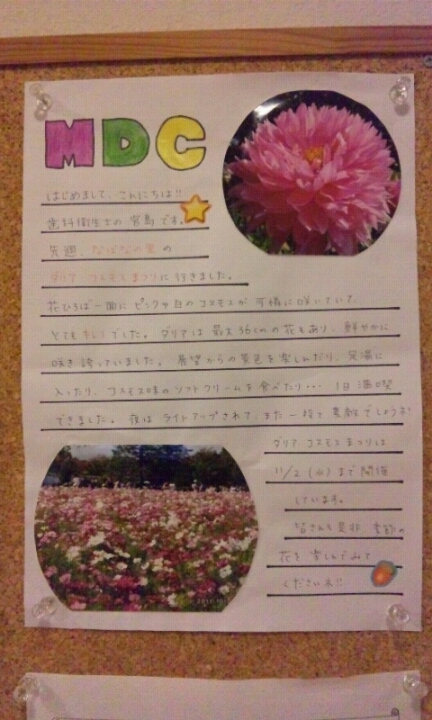 MDC
はじめまして、こんにちは!!
歯科衛生士の宮島です。
先週、なばなの里の
ダリア・コスモスまつりに行きました。
花ひろば一面にピンクや白のコスモスが可憐に咲いていて、
とてもきれいでした。ダリアは最大36cmの花もあり、鮮やかに
咲き誇っていました。展望からの景色を楽しんだり、足湯に
入ったり、コスモス味のソフトクリームを食べたり・・・ 1日満喫
できました。夜はライトアップされて、また一段と素敵でしょうネ!
ダリア コスモスまつりは
11/2 (火) まで開催
しています。
皆さんも是非 季節の
花を楽しんでみて
くださいネ!!